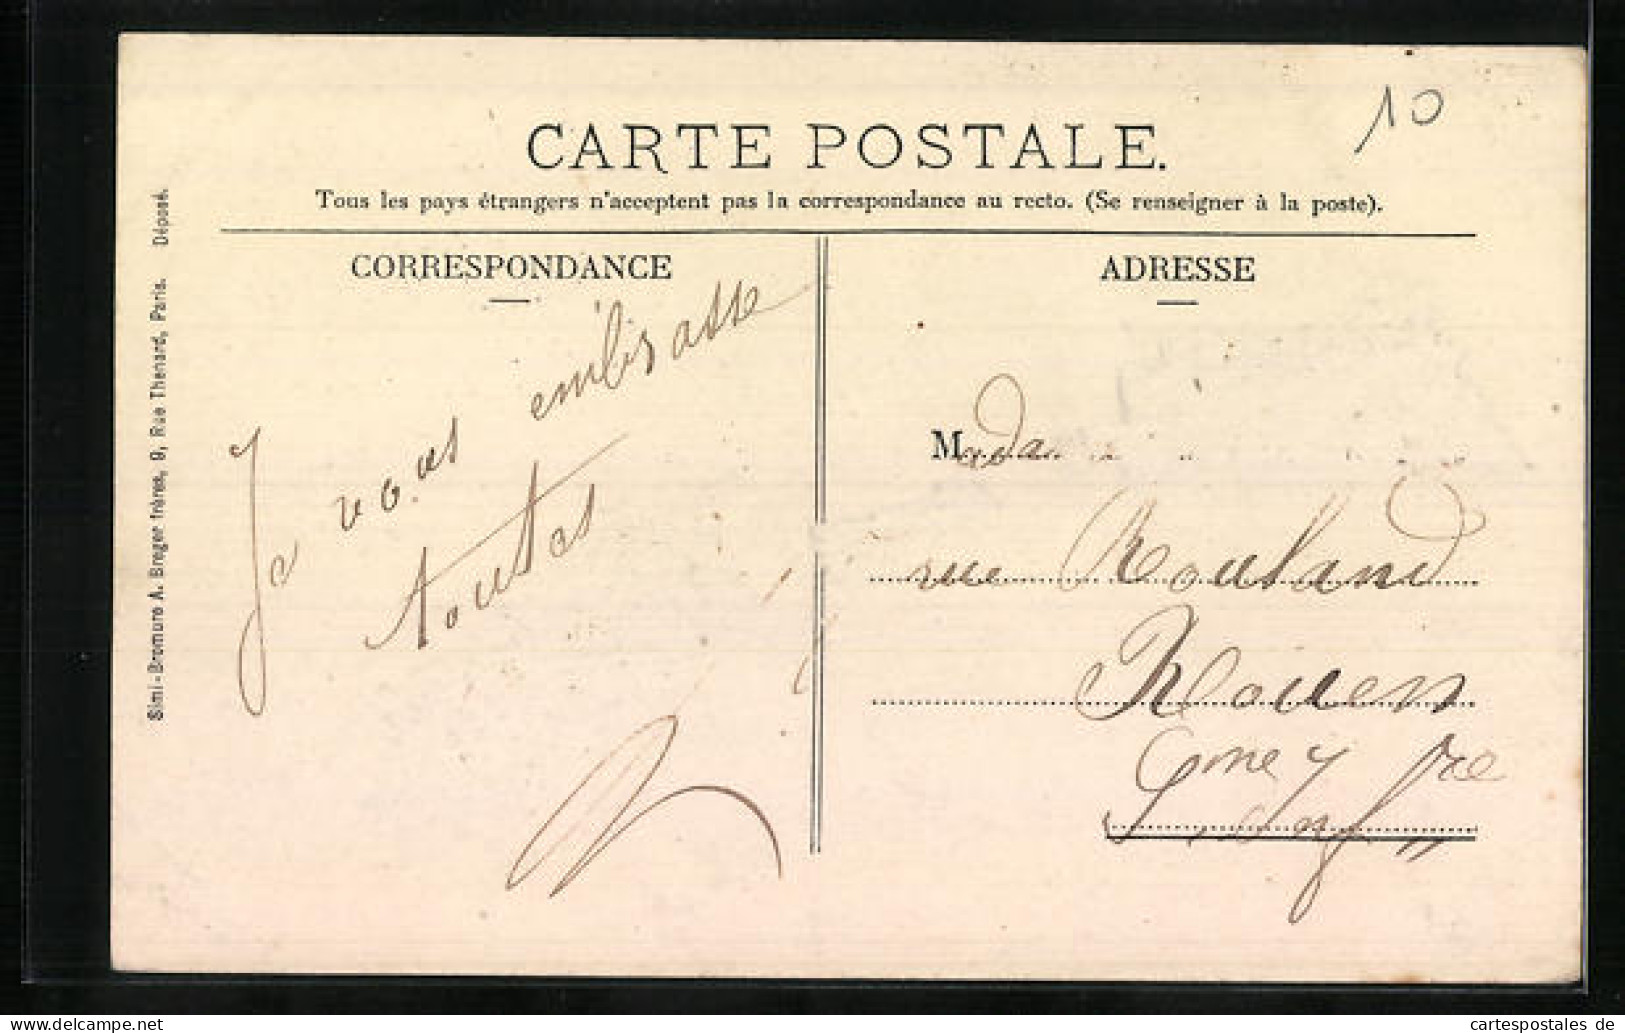 10
CARTE POSTALE.
Tous les pays étrangers n'acceptent pas la correspondance au recto. (Se renseigner à la poste).
CORRESPONDANCE
Je vous embrasse
toutes
ADRESSE
Mada
rue Rouland
Rouen
Seine Infre
Simi-Bromure A. Breger frères, 9, Rue Thenard, Paris. Déposé.
cartespostales de